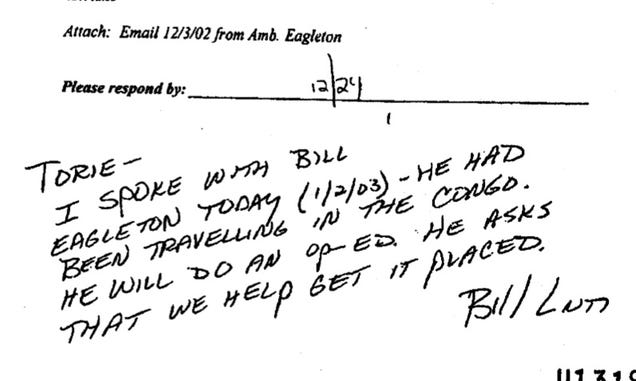 Attach: Email 12/3/02 from Amb. Eagleton
Please respond by: 12/24
TORIE—
I SPOKE WITH BILL
EAGLETON TODAY (1/2/03) - HE HAD
BEEN TRAVELLING IN THE CONGO.
HE WILL DO AN OP-ED. HE ASKS
THAT WE HELP GET IT PLACED.
Bill Luti